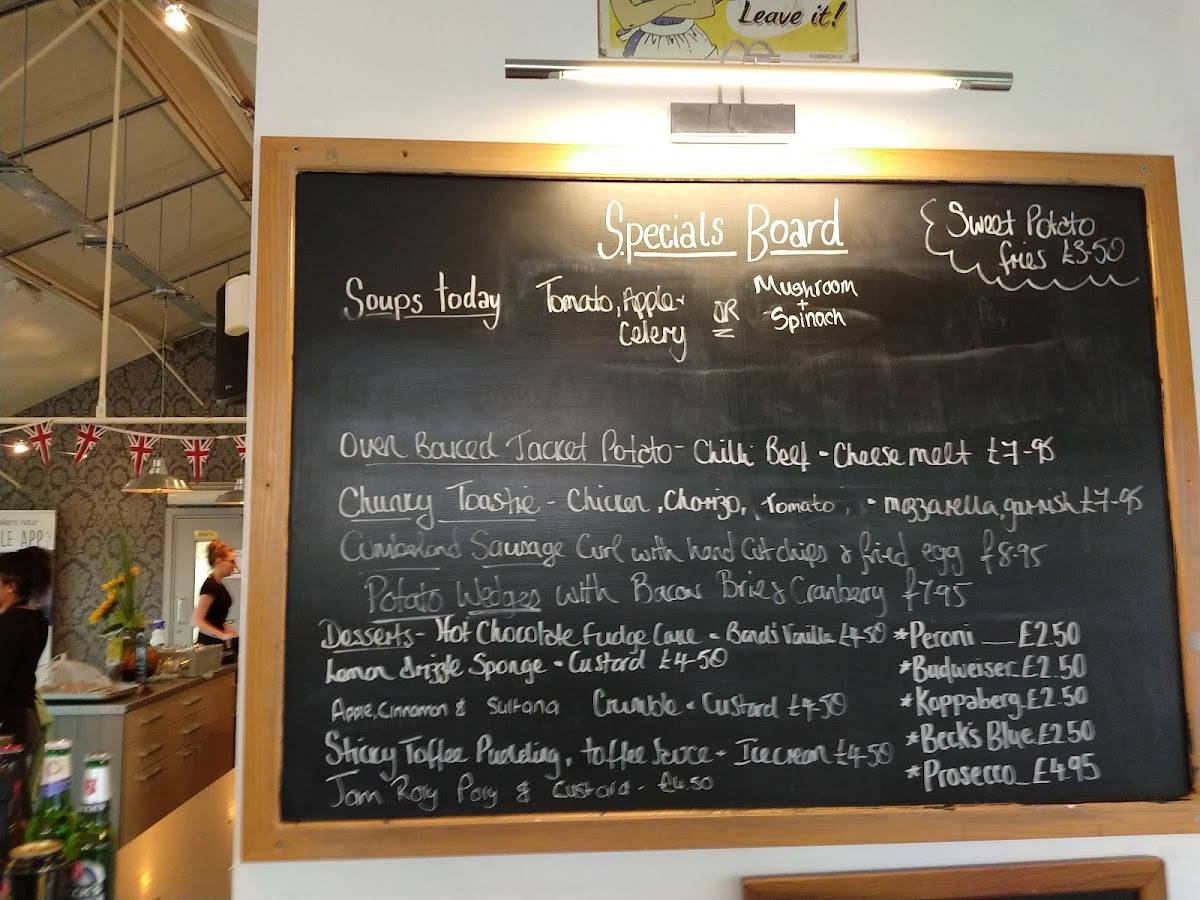 Leave it!
Specials Board
Sweet Potato
fries £3-50
Soups today
Tomato, Apple +
Celery
OR
Mushroom
+
Spinach
Oven Baked Jacket Potato - Chilli Beef + Cheese melt £7-95
Chunky Toastie - Chicken, Chorizo, Tomato, + mozzarella, garnish £7-95
Cumberland Sausage Curl with hand Cut chips & fried egg £8.95
Potato Wedges with Bacon Brie & Cranberry £7.95
Desserts - Hot Chocolate Fudge Cake + Vanilla £4-50
Lemon drizzle Sponge + Custard £4-50
Apple, Cinnamon & Sultana Crumble + Custard £4-50
Sticky Toffee Pudding, toffee Sauce + Ice cream £4.50
Jam Roly Poly & Custard - £4.50
*Peroni __ £2.50
*Budweiser_£2.50
*Koppaberg_£2.50
*Beck's Blue_£2.50
*Prosecco_£4.95
LE APP